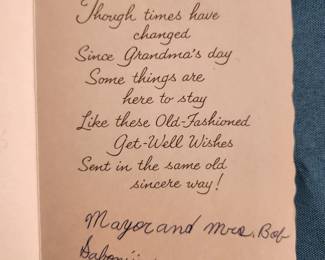 Though times have
changed
Since Grandma's day
Some things are
here to stay
Like these Old-Fashioned
Get-Well Wishes
Sent in the same old
sincere way!
Mayor and Mrs. Bob